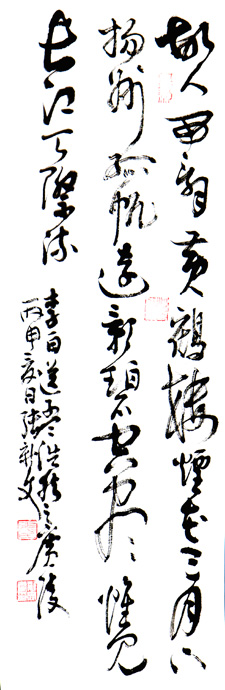 故人西辭黃鶴樓煙花三月下
揚州孤帆遠影碧空盡惟見
長江天際流
李白送孟浩然之廣陵
丙申夏日新文